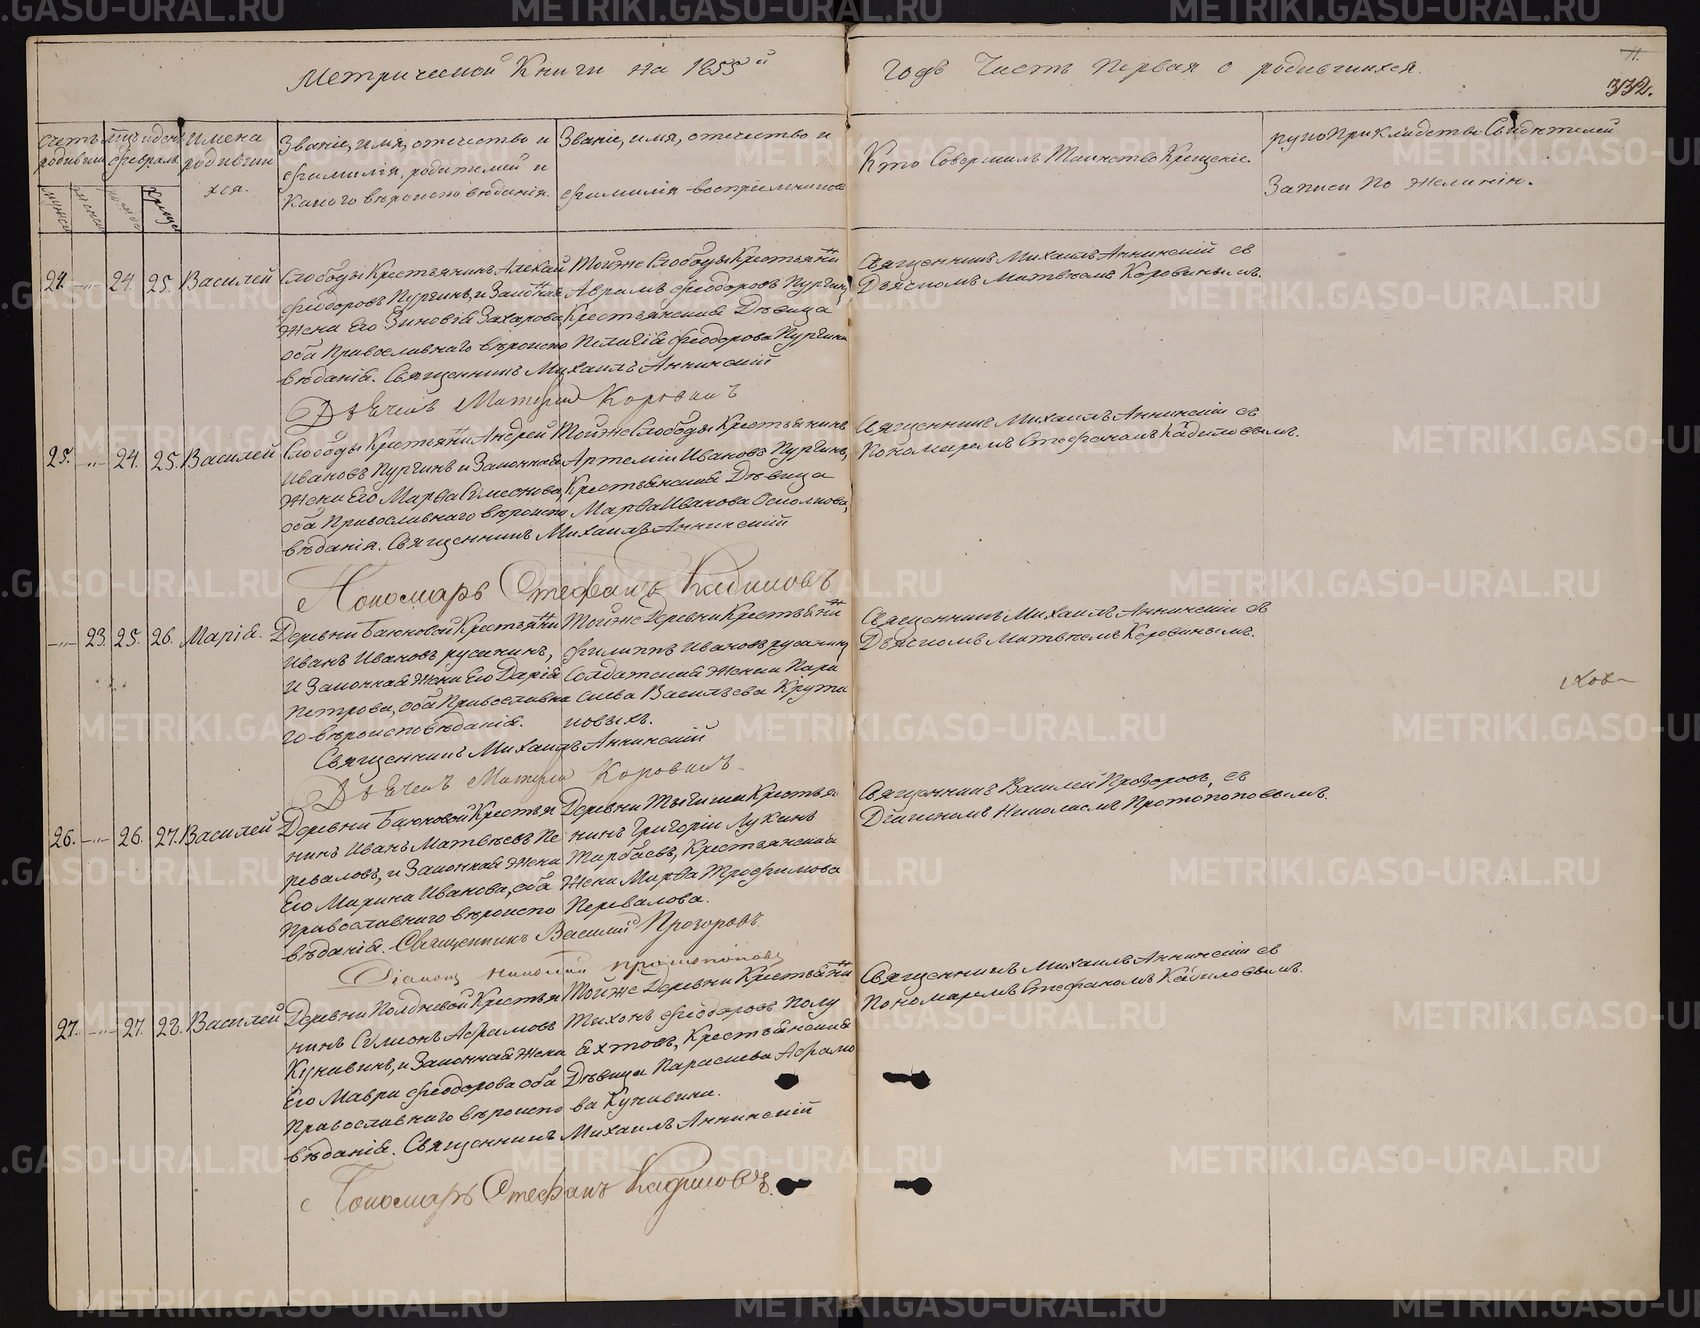 Метрической Книги на 1855й годъ Часть Первая о родившихся.
11.
332.
Счетъ родивших.
Мцъ и день февраль.
Имена родившихся.
Званіе, имя, отчество и фамилія родителей и какого вѣроисповѣданія.
Званіе, имя, отчество и фамилія воспріемниковъ
Кто Совершилъ Таинство Крещенія.
рукоприкладство Свидѣтелей Записи по желанію.
24. —"— 24. 25. Василей
Слободы Крестьянинъ
Феодоровъ Пургинъ, и Законная
Жена Его Зиновія Захарова
оба Православнаго вѣроиспо
вѣданія. Священникъ Михаилъ Аннинскій
Дьячекъ Матвей Коровинъ
Тойже Слободы Крестьянинъ
Аврамъ Феодоровъ Пургинъ,
Крестьянская Дѣвица
Пелагія Феодорова Пургина
Священникъ Михаилъ Аннинскій съ
Дьячкомъ Матвѣемъ Коровинымъ.
25. —"— 24. 25. Василей
Слободы Крестьянинъ Андрей
Ивановъ Пургинъ и Законная
Жена Его Марфа Симеонова,
оба Православнаго вѣроиспо
вѣданія. Священникъ Михаилъ Аннинскій
Пономарь Стефанъ Кадиловъ
Тойже Слободы Крестьянинъ
Артемій Ивановъ Пургинъ,
Крестьянская Дѣвица
Марфа Иванова
Священникъ Михаилъ Аннинскій съ
Пономаремъ Стефаномъ Кадиловымъ.
—"— 23. 25. 26. Марія.
Деревни Баюновой Крестьянинъ
Иванъ Ивановъ русинъ,
И Законная Жена Его Дарія
Петрова, оба Православна
го вѣроисповѣданія.
Священникъ Михаилъ Аннинскій
Дьячекъ Матвей Коровинъ.
Тойже Деревни Крестьянинъ
Филиппъ Ивановъ
Солдатская Женка Пара
скева Васильева Крути
новыхъ.
Священникъ Михаилъ Аннинскій съ
Дьячкомъ Матвѣемъ Коровинымъ.
26. —"— 26. 27. Василей
Деревни Баюновой Крестья
нинъ Иванъ Матвѣевъ Пе
реваловъ, и Законная Жена
Его Марина Иванова, оба
Православнаго вѣроиспо
вѣданія. Священникъ Василій Прозоровъ.
Діаконъ Николай Протопоповъ
Деревни Крестья
нинъ Григорій Лукинъ
Крестьянская
Жена Марфа Трофимова
Перевалова.
Священникъ Василей Прозоровъ, съ
Діакономъ Николаемъ Протопоповымъ.
27. —"— 27. 28. Василей
Деревни Полдневой Крестья
нинъ Симеонъ Абрамовъ
Кунавинъ, и Законная Жена
Его Мавра Феодорова оба
Православнаго вѣроиспо
вѣданія. Священникъ Михаилъ Аннинскій
Пономарь Стефанъ Кадиловъ.
Тойже Деревни Крестьянинъ
Тихонъ Феодоровъ Полу
яхтовъ, Крестьянская
Дѣвица Параскева Абрамо
ва Кунавина.
Священникъ Михаилъ Аннинскій съ
Пономаремъ Стефаномъ Кадиловымъ.
METRIKI.GASO-URAL.RU